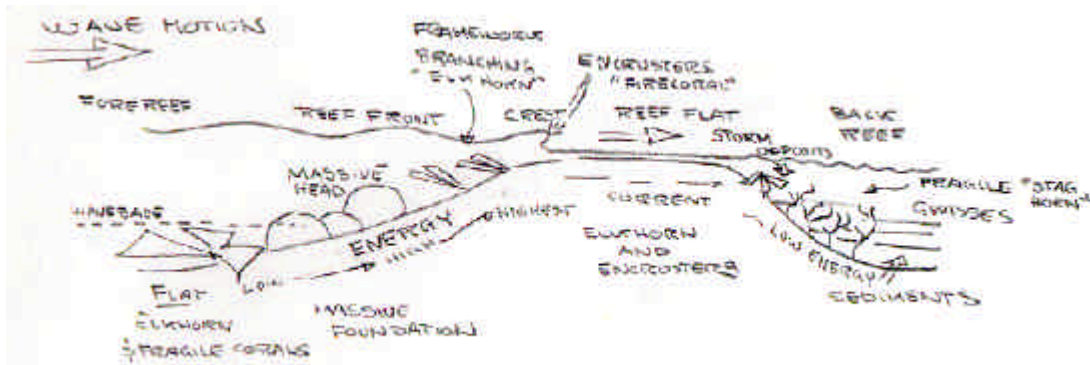 WAVE MOTION
FRAMEWORK
BRANCHING
"ELKHORN"
ENCRUSTERS
"FIRECORAL"
FOREREEF
REEF FRONT
CREST
REEF FLAT
BACK
REEF
STORM
DEPOSITS
MASSIVE
HEAD
FRAGILE "STAG
HORN"
WAVEBASE
ENERGY
LOW
HIGH
HIGHEST
CURRENT
ELKHORN
AND
ENCRUSTERS
LOW ENERGY
SEDIMENTS
FLAT
ELKHORN
& FRAGILE CORALS
MASSIVE
FOUNDATION